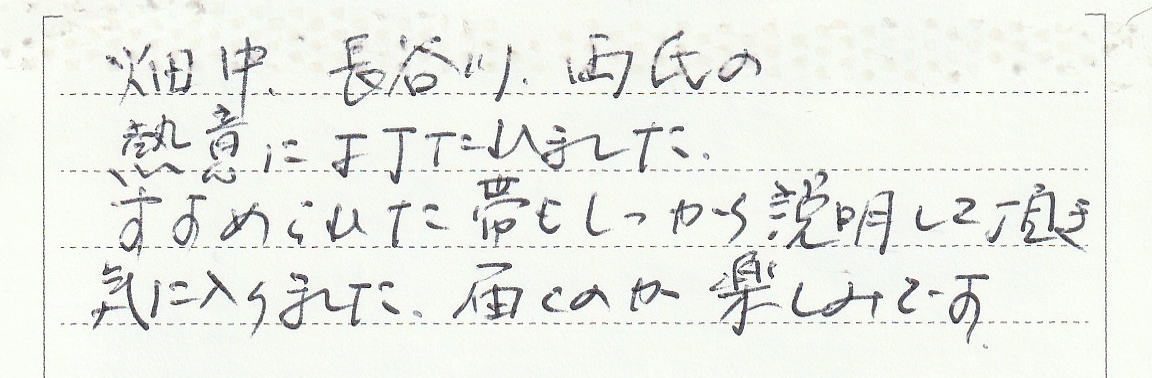 畑中、長谷川、両氏の
熱意に打たれました。
すすめられた帯もしっかり説明して頂き
気に入りました。届くのが楽しみです。